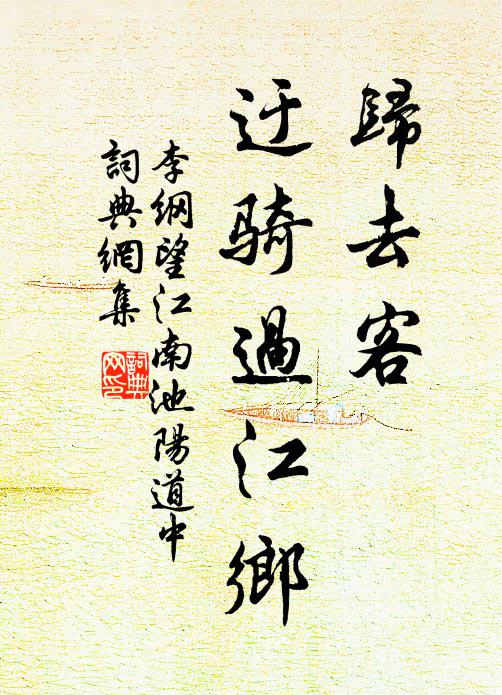 歸去客
迂騎過江鄉
李綱望江南池陽道中
詞典網集
詞典
网印